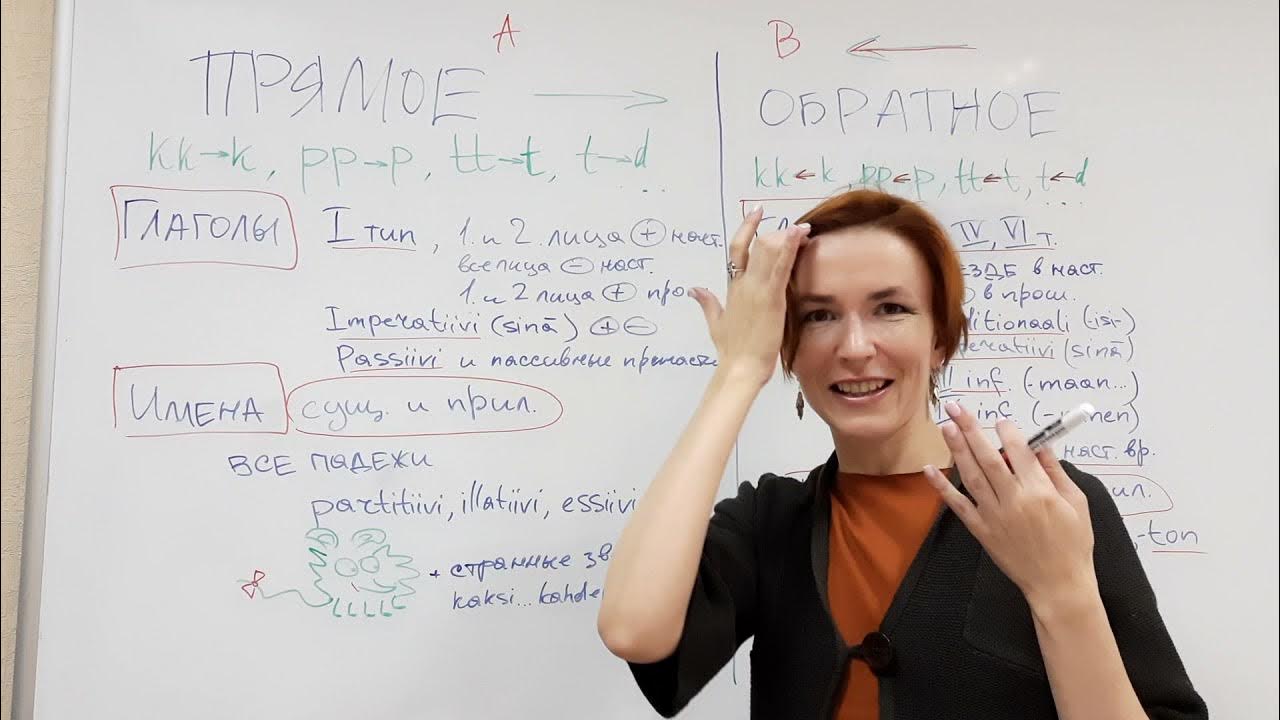 A
ПРЯМОЕ →
kk→k, pp→p, tt→t, t→d ...
ГЛАГОЛЫ
I тип, 1. и 2. лица ⊕ наст.
все лица ⊖ наст.
1. и 2 лица ⊕
Imperatiivi (sinä) ⊕ ⊖
Passiivi и пассивные
ИМЕНА сущ. и прил.
ВСЕ ПАДЕЖИ
partitiivi, illatiivi, essiivi
+ странные
kaksi...
B ←
ОБРАТНОЕ
kk←k, pp←p, tt←t, t←d ...
IV, VI т.
в наст.
в прош.
(-isi-)
(sinä)
inf. (-maan...)
inf.
наст. вр.
-ton